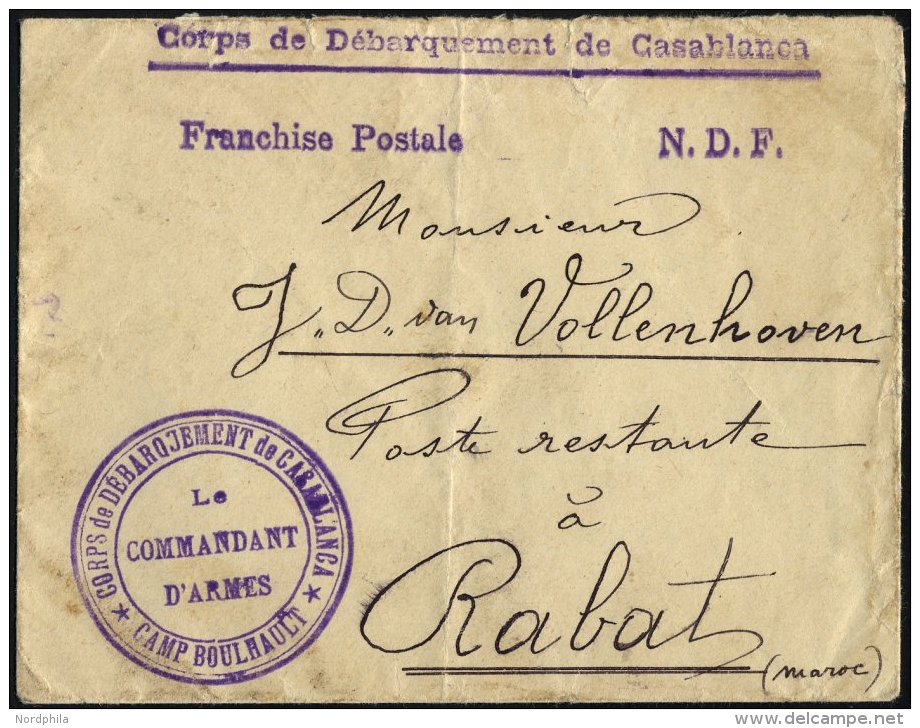 Corps de Débarquement de Casablanca
Franchise Postale N. D. F.
Monsieur
J. „D„ van Vollenhoven
Poste restante
à
Rabat
(Maroc)
CORPS de DÉBARQUEMENT de CASABLANCA
Le
COMMANDANT
D'ARMES
★ CAMP BOULHAULT ★
Nordphila
delcampe.net